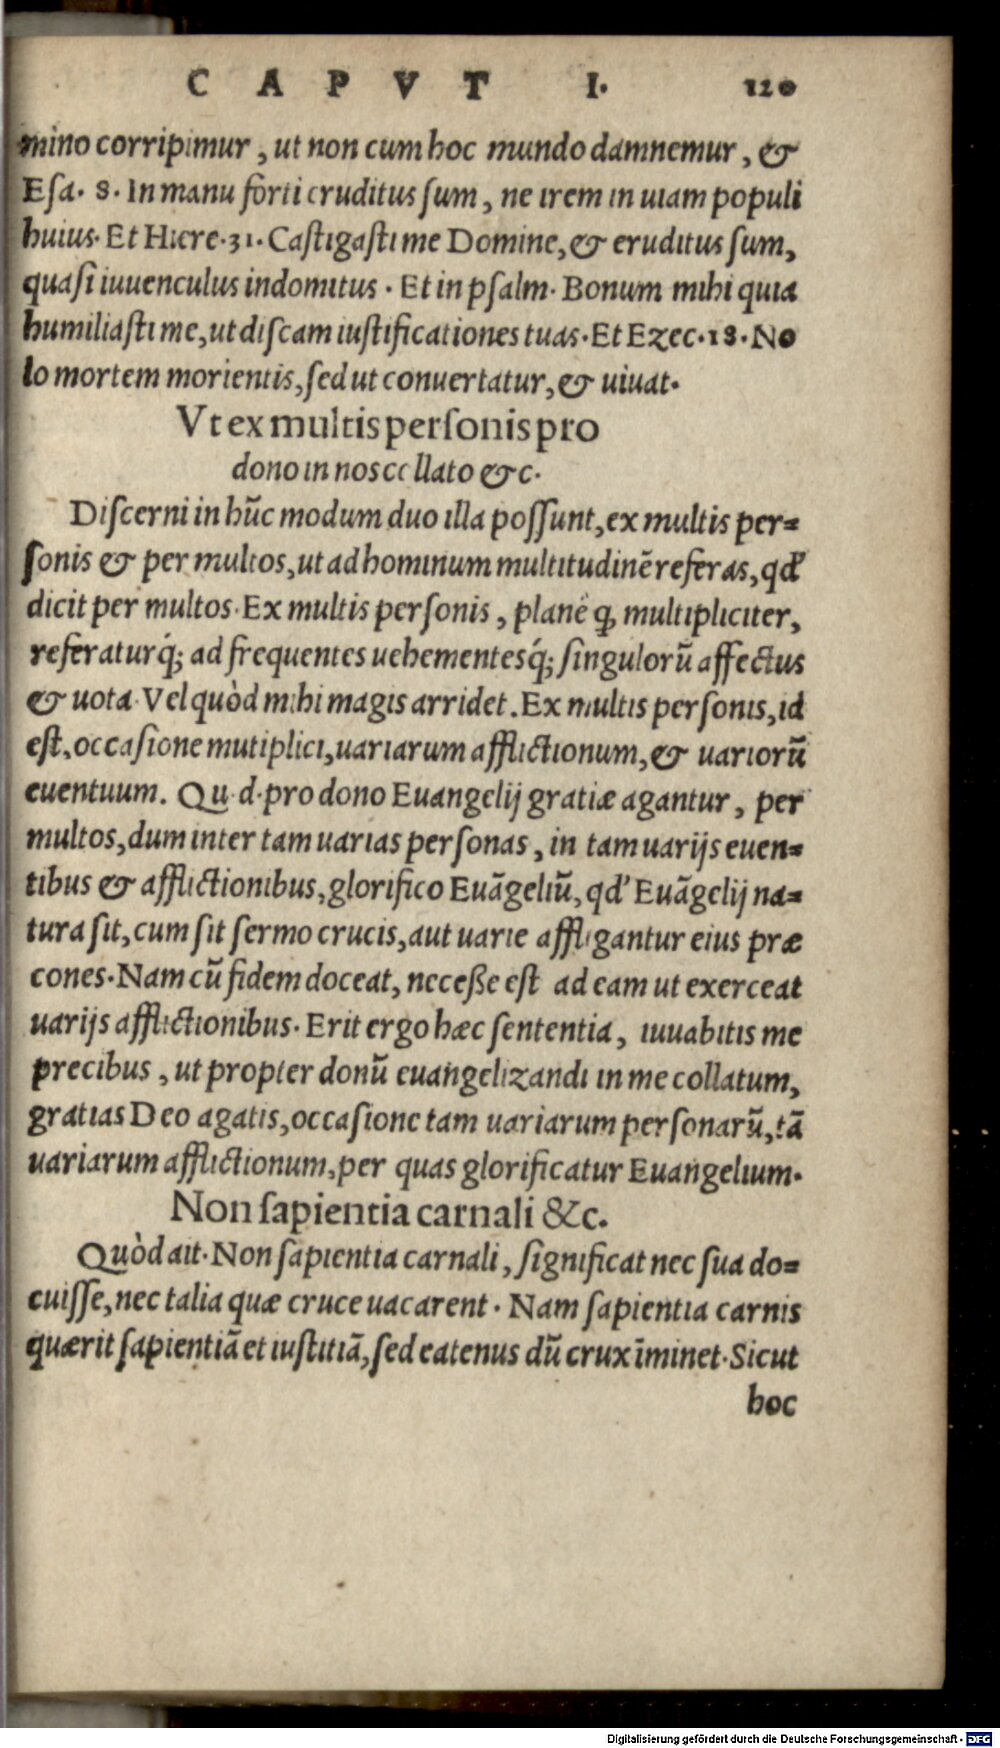 CAPVT I. 120
mino corripimur, ut non cum hoc mundo damnemur, &
Esa. 8. In manu forti eruditus sum, ne irem in uiam populi
huius. Et Hiere. 31. Castigasti me Domine, & eruditus sum,
quasi iuuenculus indomitus. Et in psalm. Bonum mihi quia
humiliasti me, ut discam iustificationes tuas. Et Ezec. 18. No
lo mortem morientis, sed ut conuertatur, & uiuat.
Vt ex multis personis pro
dono in nos collato &c.
Discerni in hūc modum duo illa possunt, ex multis per=
sonis & per multos, ut ad hominum multitudinē referas, qđ
dicit per multos. Ex multis personis, planè q̢ multipliciter,
referaturq́; ad frequentes uehementesq́; singulorū affectus
& uota. Vel quòd mihi magis arridet. Ex multis personis, id
est, occasione mutiplici, uariarum afflictionum, & uariorū
euentuum. Qu. d. pro dono Euangelij gratiæ agantur, per
multos, dum inter tam uarias personas, in tam uarijs euen=
tibus & afflictionibus, glorifico Euāgeliū, qđ Euāgelij na=
tura sit, cum sit sermo crucis, aut uarie affligantur eius præ
cones. Nam cū fidem doceat, necesse est ad eam ut exerceat
uarijs afflictionibus. Erit ergo hæc sententia, iuuabitis me
precibus, ut propter donū euangelizandi in me collatum,
gratias Deo agatis, occasione tam uariarum personarū, tā
uariarum afflictionum, per quas glorificatur Euangelium.
Non sapientia carnali &c.
Quòd ait. Non sapientia carnali, significat nec sua do=
cuisse, nec talia quæ cruce uacarent. Nam sapientia carnis
quærit sapientiā et iustitiā, sed eatenus dū crux īminet. Sicut
hoc
Digitalisierung gefördert durch die Deutsche Forschungsgemeinschaft - DFG